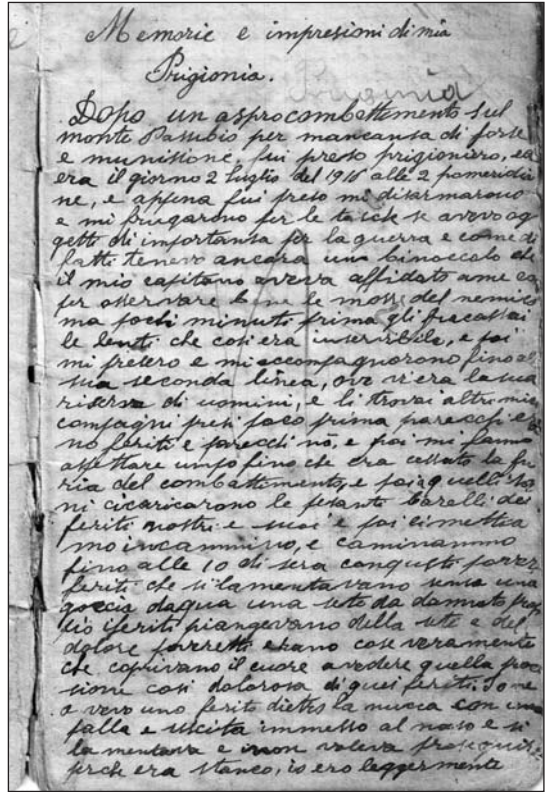 Memorie e impresioni di mia
Prigionia.
Dopo un aspro combattemento sul
monte Pasubio per mancansa di forse
e munissione, fui preso prigioniero, ed
era il giorno 2 luglio del 1916 alle 2 pomeridia
ne, e appena fui preso mi disarmarono
e mi frugarono per le tasche se avevo og
getti di importansa per la guerra e come di
fatti tenevo ancora un binoccolo che
il mio capitano aveva affidato ame
per osservare bene le mosse del nemico
ma pochi minuti prima gli fracassai
le lenti che cosi era inservibile, e poi
mi presero e mi accompagnorono fino al
sua seconda linea, ove vi era la sua
riserva di uomini, e li trovai altri miei
compagni presi poco prima parecchi e
no feriti e parecchi no, e poi mi fanno
aspettare unpo fino che era cessato la fu
ria del combattimento, e poi a quelli sa
ni ci caricarono le pesante barelli dei
feriti nostri e suoi e poi ci mettia
mo incammino, e caminammo
fino alle 10 di sera con questi
feriti che si lamentavano senza una
goccia daqua una sete da dannato
iferiti piangevano della sete e del
dolore erano cose veramente
che coprivano il cuore a vedere quella proce
sione cosi dolorosa di quei feriti. Io ne
a vevo uno ferito dietro la nucca con una
palla e uscita immesso al naso e si
la mentava e non voleva proseguire
perche era stanco, io ero leggermente